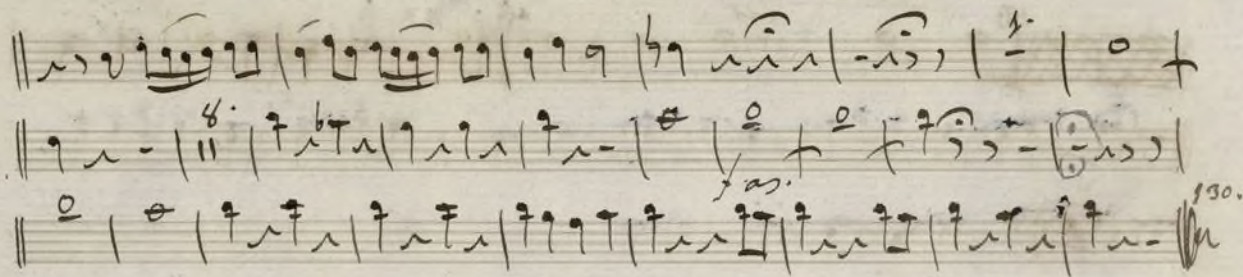 1.
8.
f as.
130.